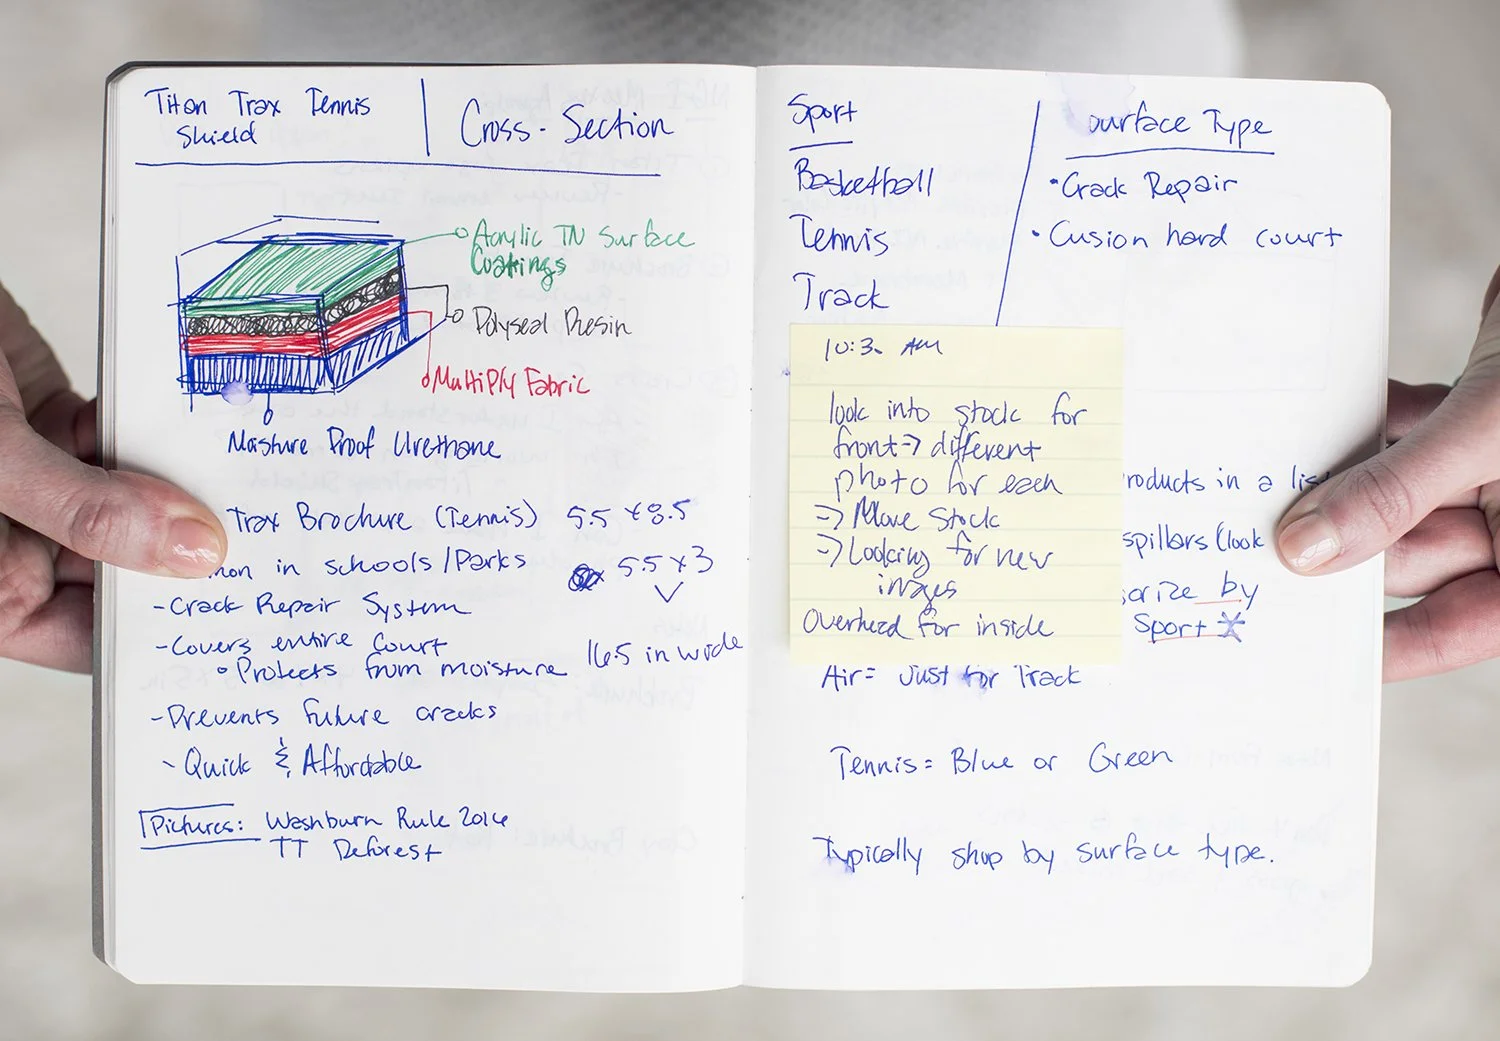 Titan Trax Tennis
Shield
Cross-Section
Acrylic TN Surface
Coatings
Polyseal Resin
Multiply Fabric
Moisture Proof Urethane
Trax Brochure (Tennis) 5.5 x 8.5
mon in schools/Parks
5.5 x 3
-Crack Repair System
-Covers entire court
Protects from moisture
16.5 in wide
-Prevents future cracks
- Quick & Affordable
Pictures: Washburn Rule 2016
TT Deforest
Sport
Basketball
Tennis
Track
Surface Type
•Crack Repair
•Cusion hard court
10:3 AM
look into stock for
front→ different
photo for each
⇒ Move Stock
⇒ Looking for new
images
Overhead for inside
roducts in a lis
spillars (look
orize by
Sport
Air= Just for Track
Tennis= Blue or Green
Typically shop by surface type.